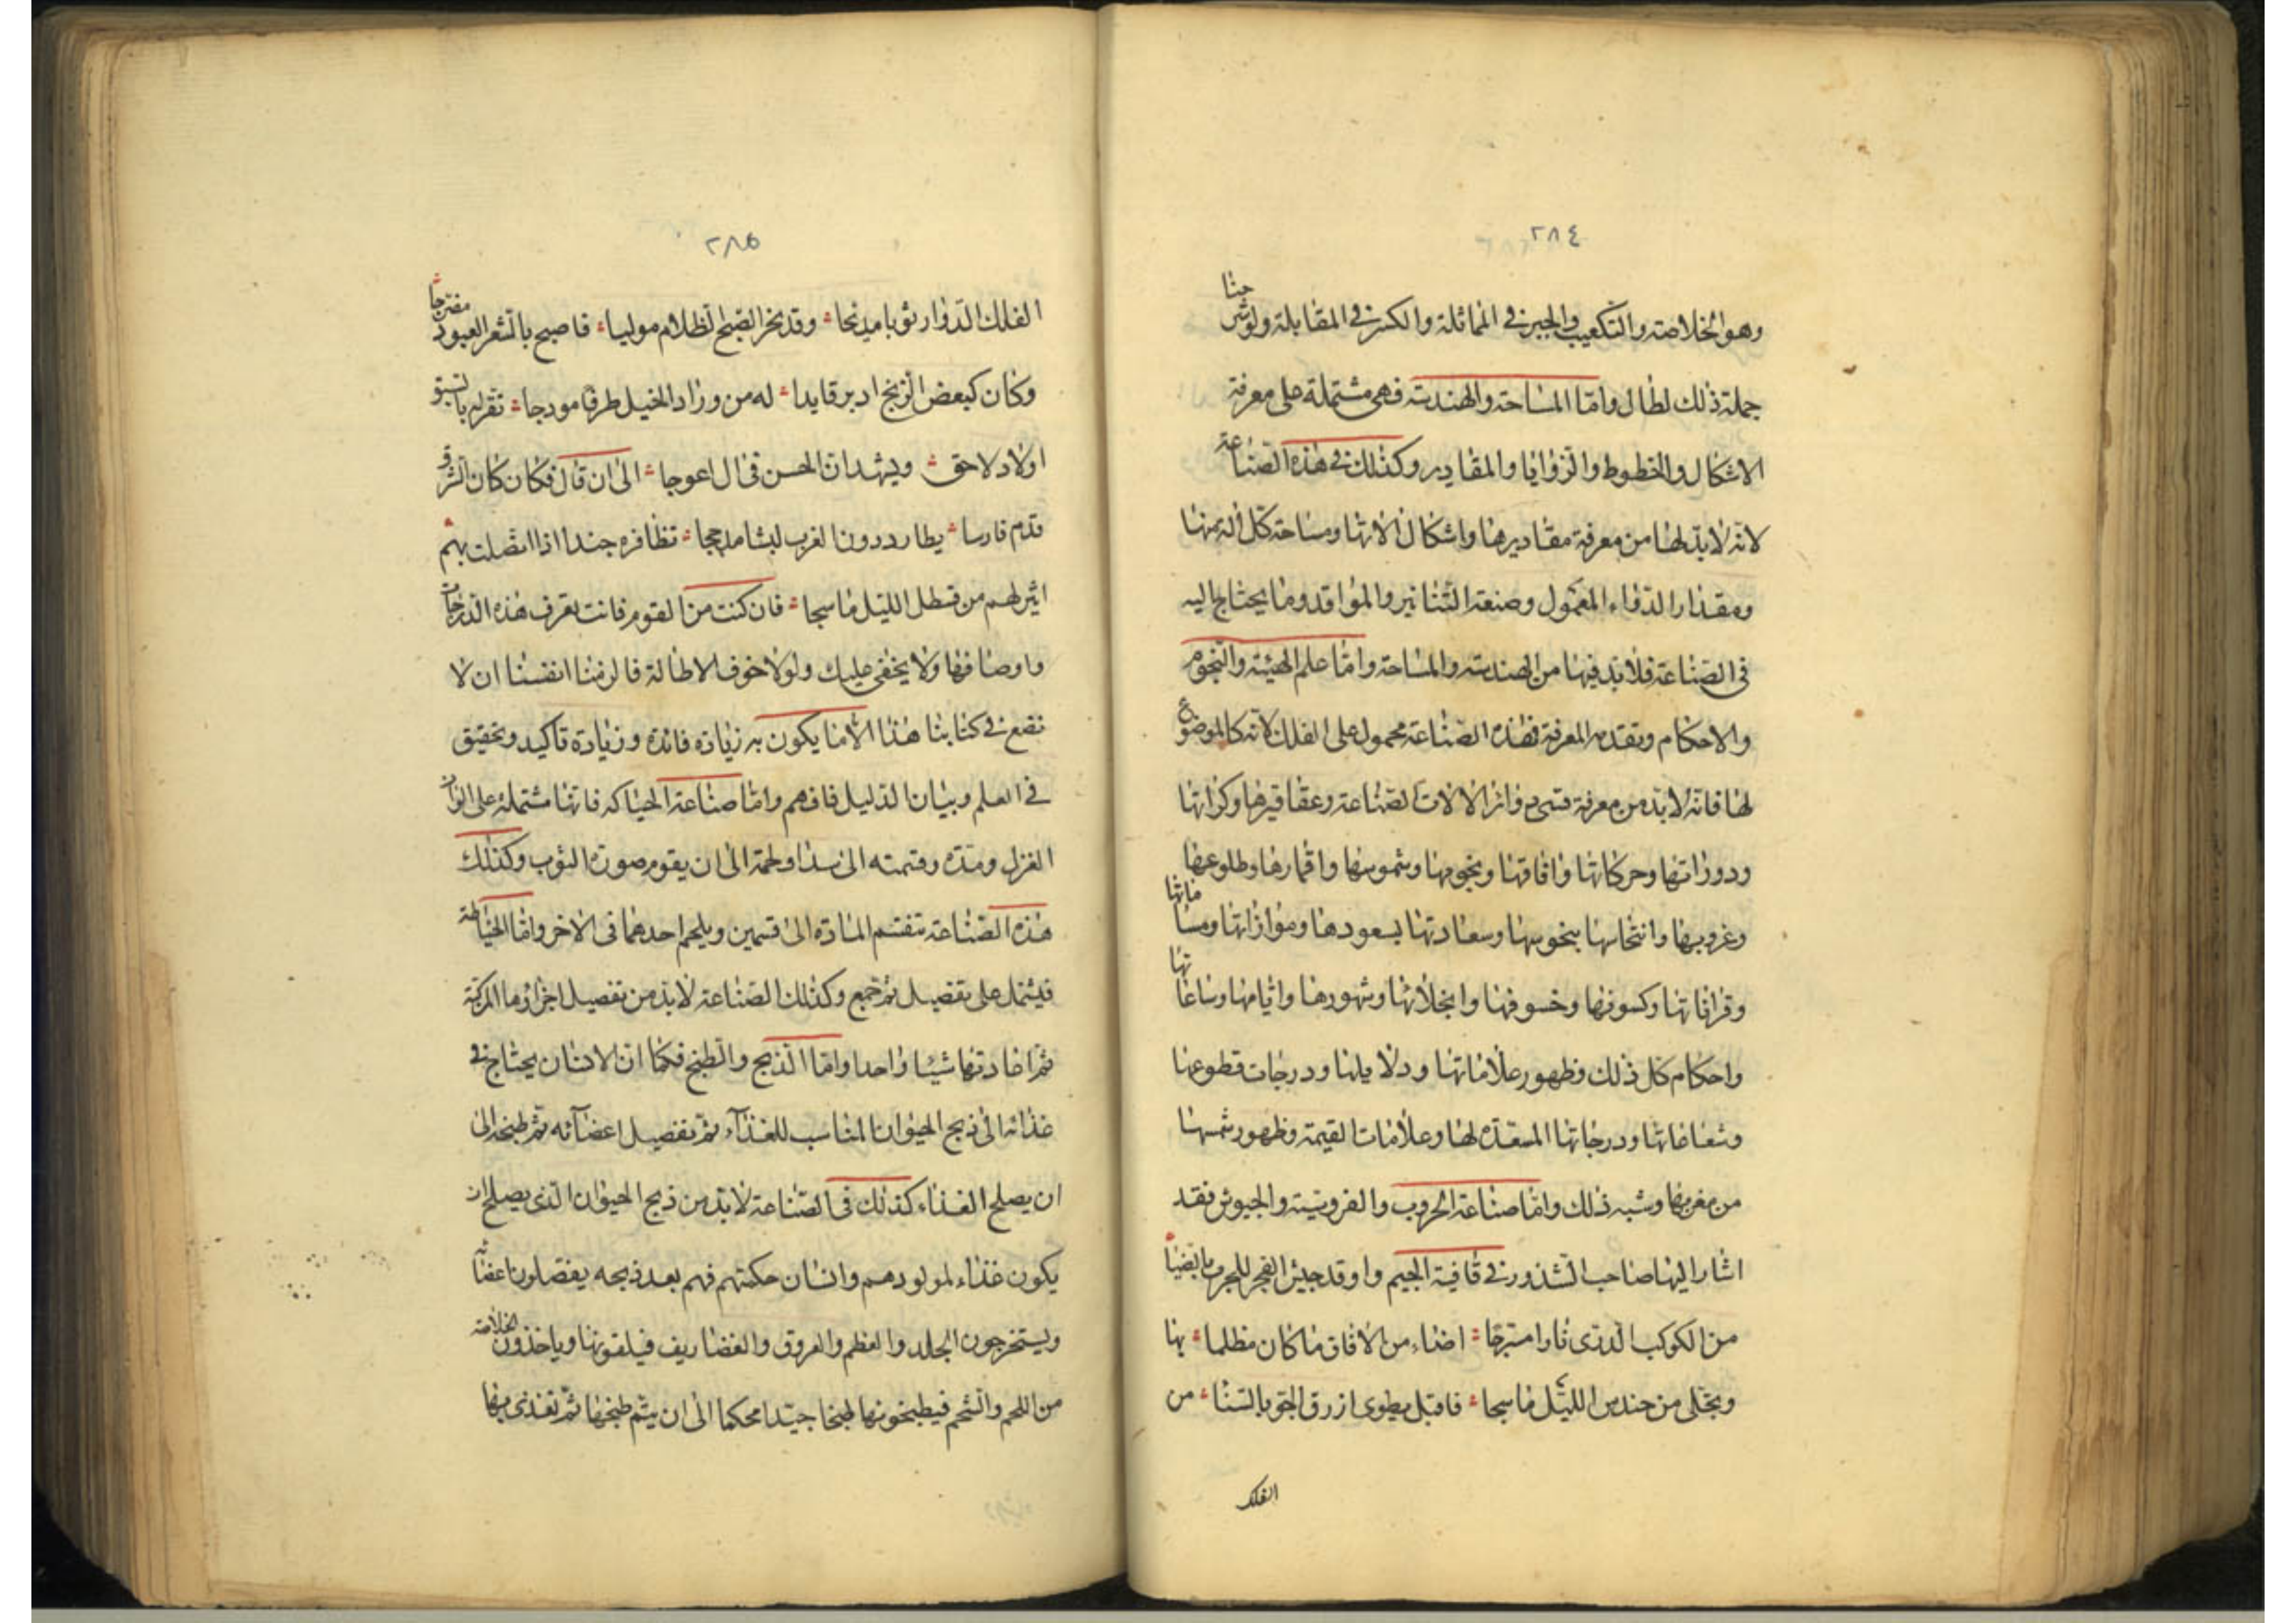 ٢٨٤
وهو الخلاصة والتكعيب والجبر في المماثلة والكسر في المقابلة ولو شرحنا
جملة ذلك لطال واما المساحة والهندسة فهي مشتملة على معرفة
الاشكال والخطوط والزوايا والمقادير وكذلك في هذه الصناعة
لانه لا بد لها من معرفة مقاديرها واشكال الاتها ومساحة كل الة منها
ومقدار الدواء المعمول وصنعة التنانير والمواقد وما يحتاج اليه
في الصناعة فلا بد فيها من الهندسة والمساحة واما علم الهيئة والنجوم
والاحكام وتقدمة المعرفة فهذه الصناعة محمول على الفلك لانه كالموضوع
لها فانه لا بد من معرفة دواثر الالات الصناعة وعقاقيرها وكراتها
ودوراتها وحركاتها وافاقها ونجومها وشموسها واقمارها وطلوعها
وغروبها وانتحاسها بنحوسها وسعادتها بسعودها وموازاتها ومساماتها
وقراناتها وكسوفها وخسوفها وانجلائها وشهورها وايامها وساعاتها
واحكام كل ذلك وظهور علاماتها ودلايلها ودرجات قطوعها
وشعاعاتها ودرجاتها المسعدة لها وعلامات القيمة وظهور شمسها
من مغربها وشبه ذلك واما صناعة الحروب والفروسية والجيوش فقد
اشار اليها صاحب الشذور في قافية الجيم واوقد جيش الفجر للحرب بالضيا
من الكوكب الدري نارا مترجا اضاء من الافاق ما كان مظلما بها
وتجلى من حندس الليل ما سجا فاقبل يطوى ازرق الجو بالسنا من
الفلك
٢٨٥
الفلك الدوار ثوبا مدبجا وقد نخر الصبح الظلام موليا فاصبح بالشعر العبور مضرجا
وكان كبعض الزنج ادبر قايدا له من وراد الخيل طرفا مودجا تقر له بالسبق
اولاد لاحق ويشهد ان الحسن في ال اعوجا الى ان قال فكان كان الشرق
قدم فارسا يطارد دون الغرب ليثا مدججا تظافره جندا اذا اتصلت بهم
اثير لهم من قسطل الليل ما سجا فان كنت من القوم فانت تعرف هذه الدرجات
واوصافها ولا يخفى عليك ولولا خوف الاطالة فالزمنا انفسنا ان لا
نضع في كتابنا هذا الا ما يكون به زيادة فائدة وزيادة تاكيد وتحقيق
في العلم وبيان الدليل فافهم واما صناعة الحياكة فانها مشتملة على
الغزل ومده وقسمته الى سدا ولحمة الى ان يقوم صورة الثوب وكذلك
هذه الصناعة تنقسم المادة الى قسمين ويلحم احدهما في الاخر واما الخياطة
فيشتمل على تفصيل ثم جمع وكذلك الصناعة لا بد من تفصيل اجزاؤها المركبة
ثم اعادتها شيئا واحدا واما الذبح والطبخ فكما ان الانسان يحتاج في
غذائه الى ذبح الحيوان المناسب للغذآء ثم تفصيل اعضآئه ثم طبخه الى
ان يصلح الغذاء كذلك في الصناعة لا بد من ذبح الحيوان الذي يصلح ان
يكون غذاء لمولودهم وانسان حكمتهم فهم بعد ذبحه يفصلون اعضائه
ويستخرجون الجلد والعظم والعروق والغضاريف فيلقونها وياخذون الخلاصة
من اللحم والشحم فيطبخونها طبخا جيدا محكما الى ان يتم طبخها ثم تغذى بها